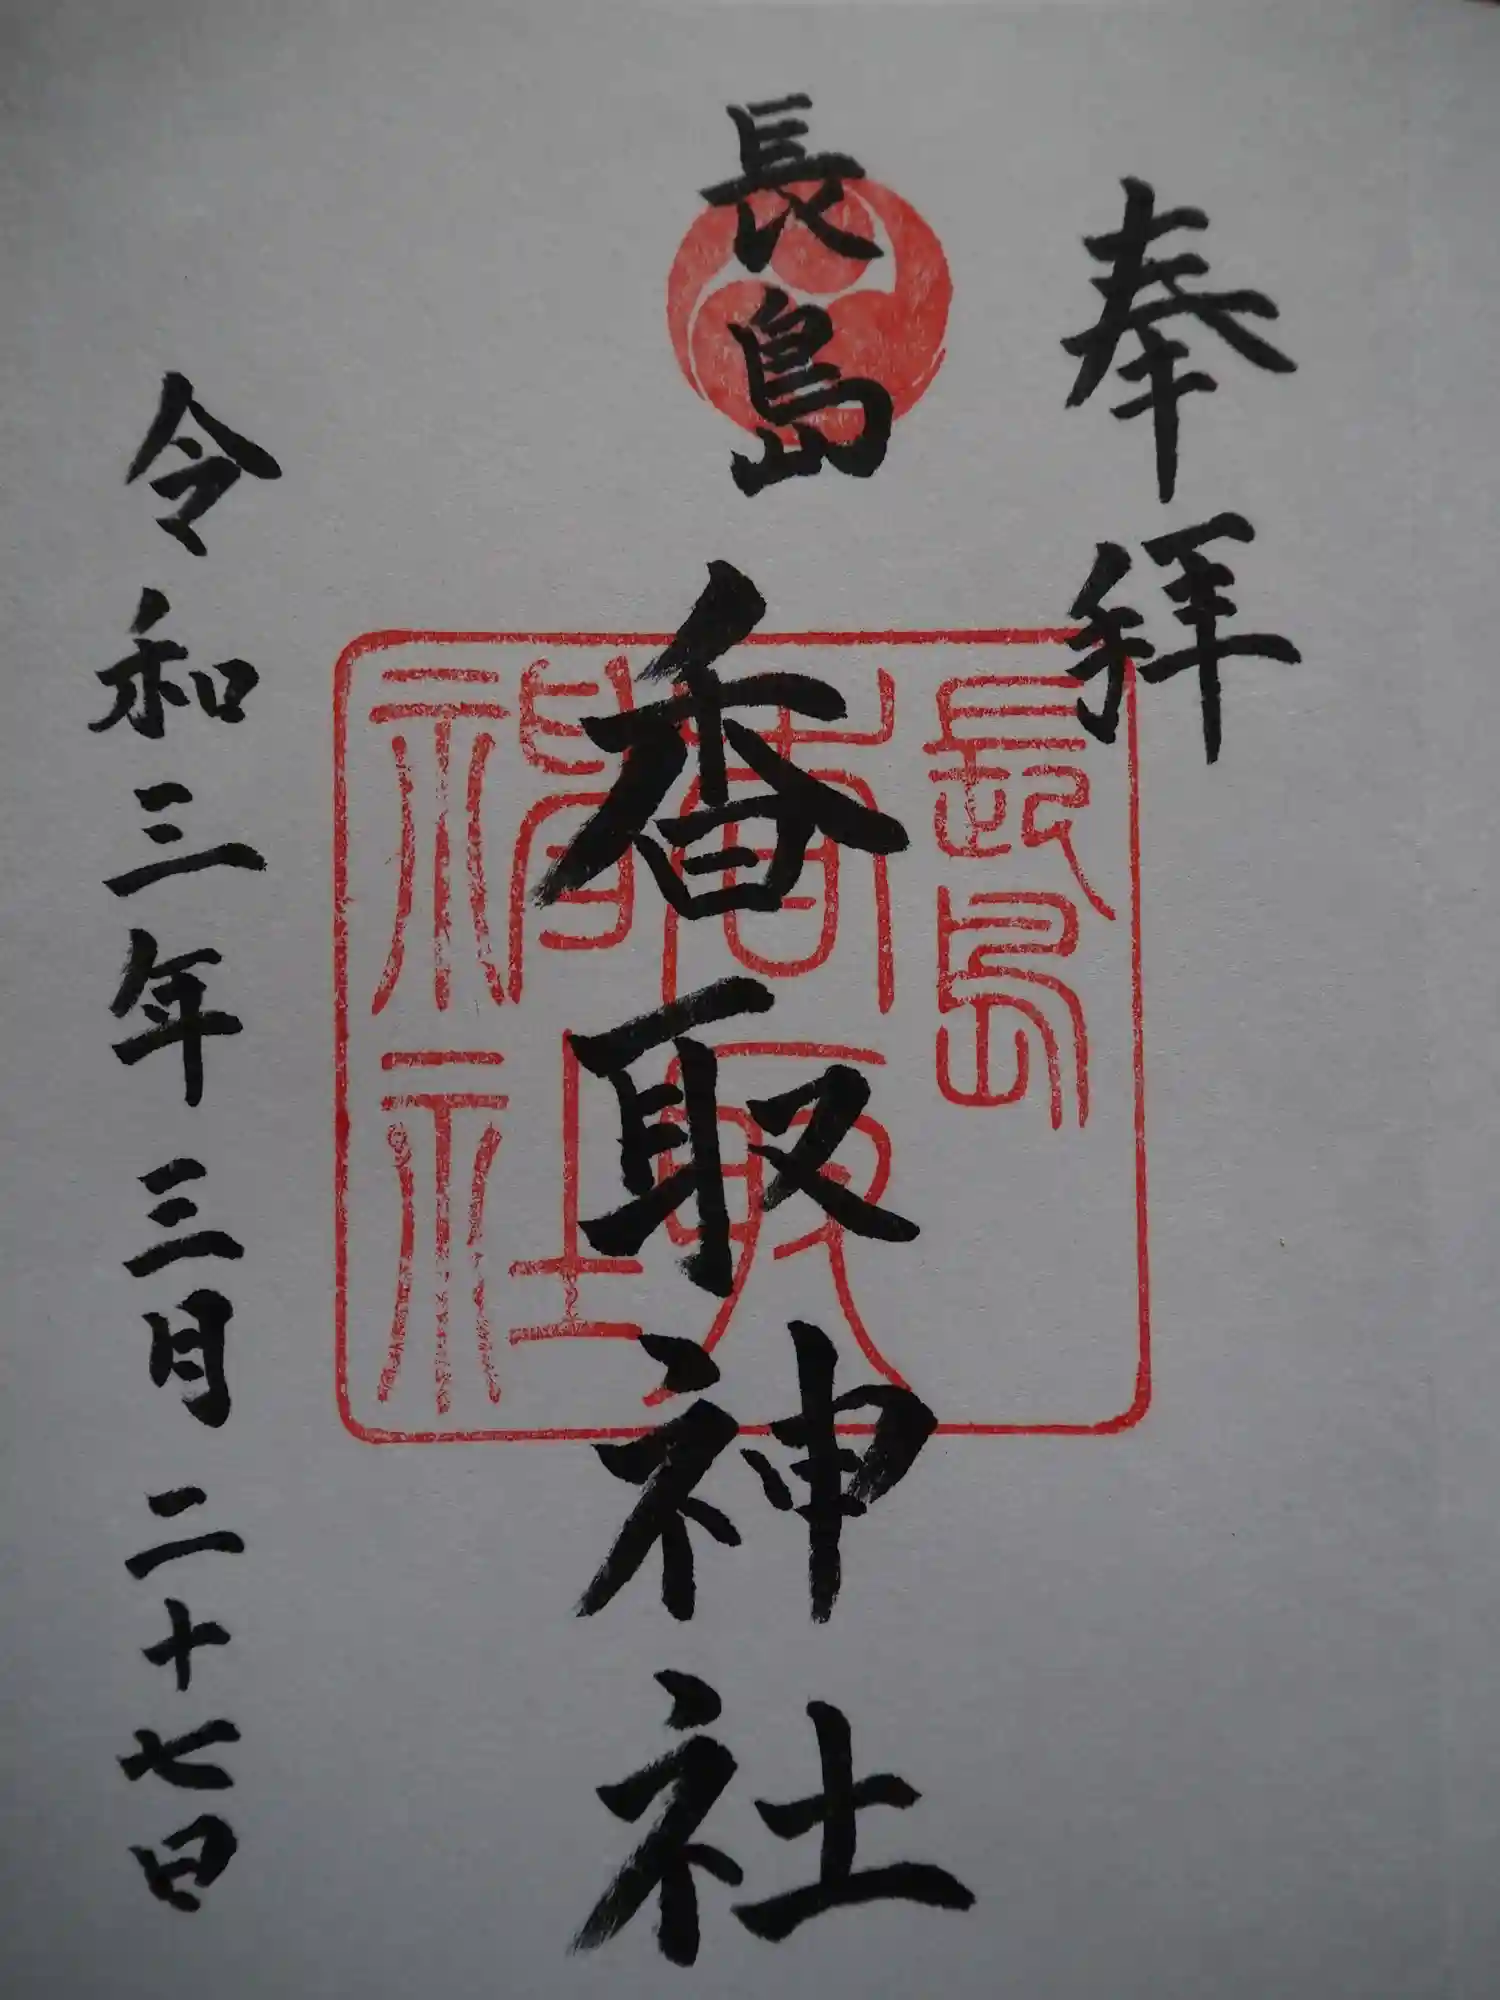 奉拝
長島 香取神社
令和三年三月二十七日
長島
香取
神社